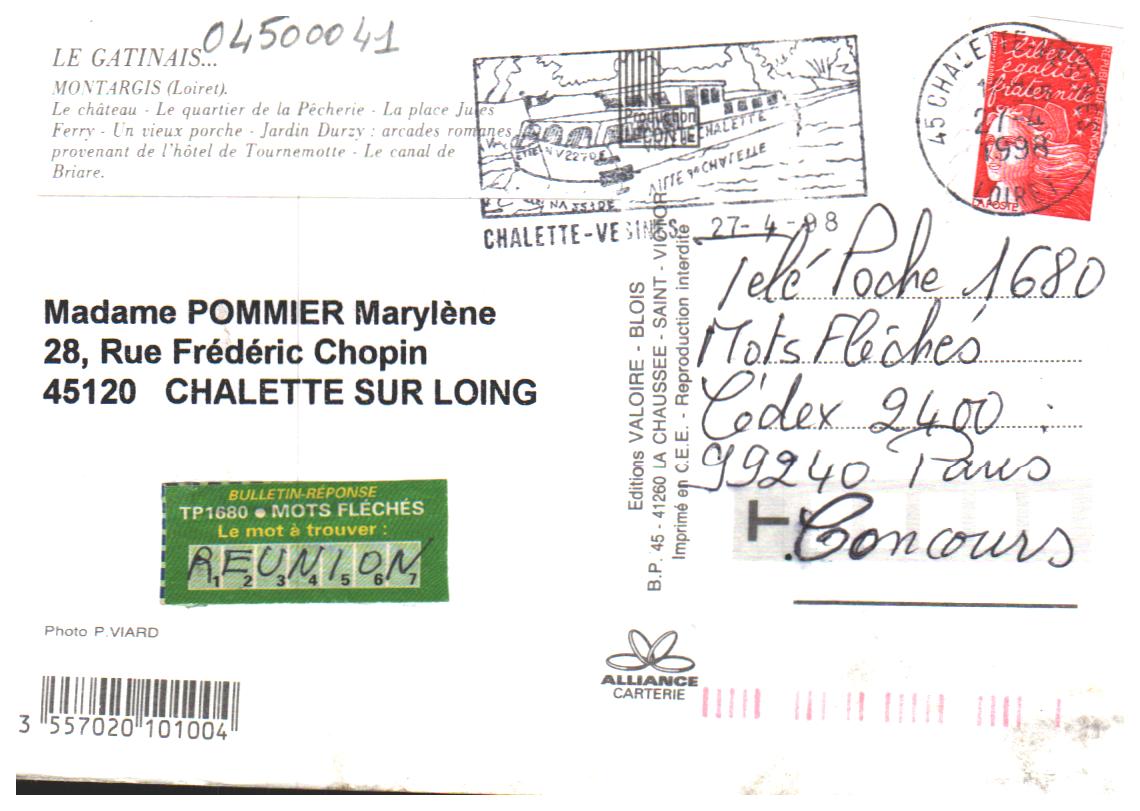 04500041
LE GATINAIS...
MONTARGIS (Loiret).
Le château - Le quartier de la Pêcherie - La place Jules
Ferry - Un vieux porche - Jardin Durzy : arcades romanes
provenant de l'hôtel de Tournemotte - Le canal de
Briare.
Production
LECONTE
CHALETTE
NV2270E
VILLE DE CHALETTE
CHALETTE-VESINES
27-4-98
45 CHALETTE
27-4
1998
LOIRET
liberté
égalité
fraternité
REPUBLIQUE FRANÇAISE
LA POSTE
Madame POMMIER Marylène
28, Rue Frédéric Chopin
45120 CHALETTE SUR LOING
Télé Poche 1680
Mots Fléchés
Cédex 2400 :
99240 Paris
T
Concours
Editions VALOIRE - BLOIS
B.P. 45 - 41260 LA CHAUSSEE - SAINT - VICTOR
Imprimé en C.E.E. - Reproduction interdite
BULLETIN-RÉPONSE
TP1680 ● MOTS FLÉCHÉS
Le mot à trouver :
REUNION
1 2 3 4 5 6 7
Photo P.VIARD
ALLIANCE
CARTERIE
3 557020 101004